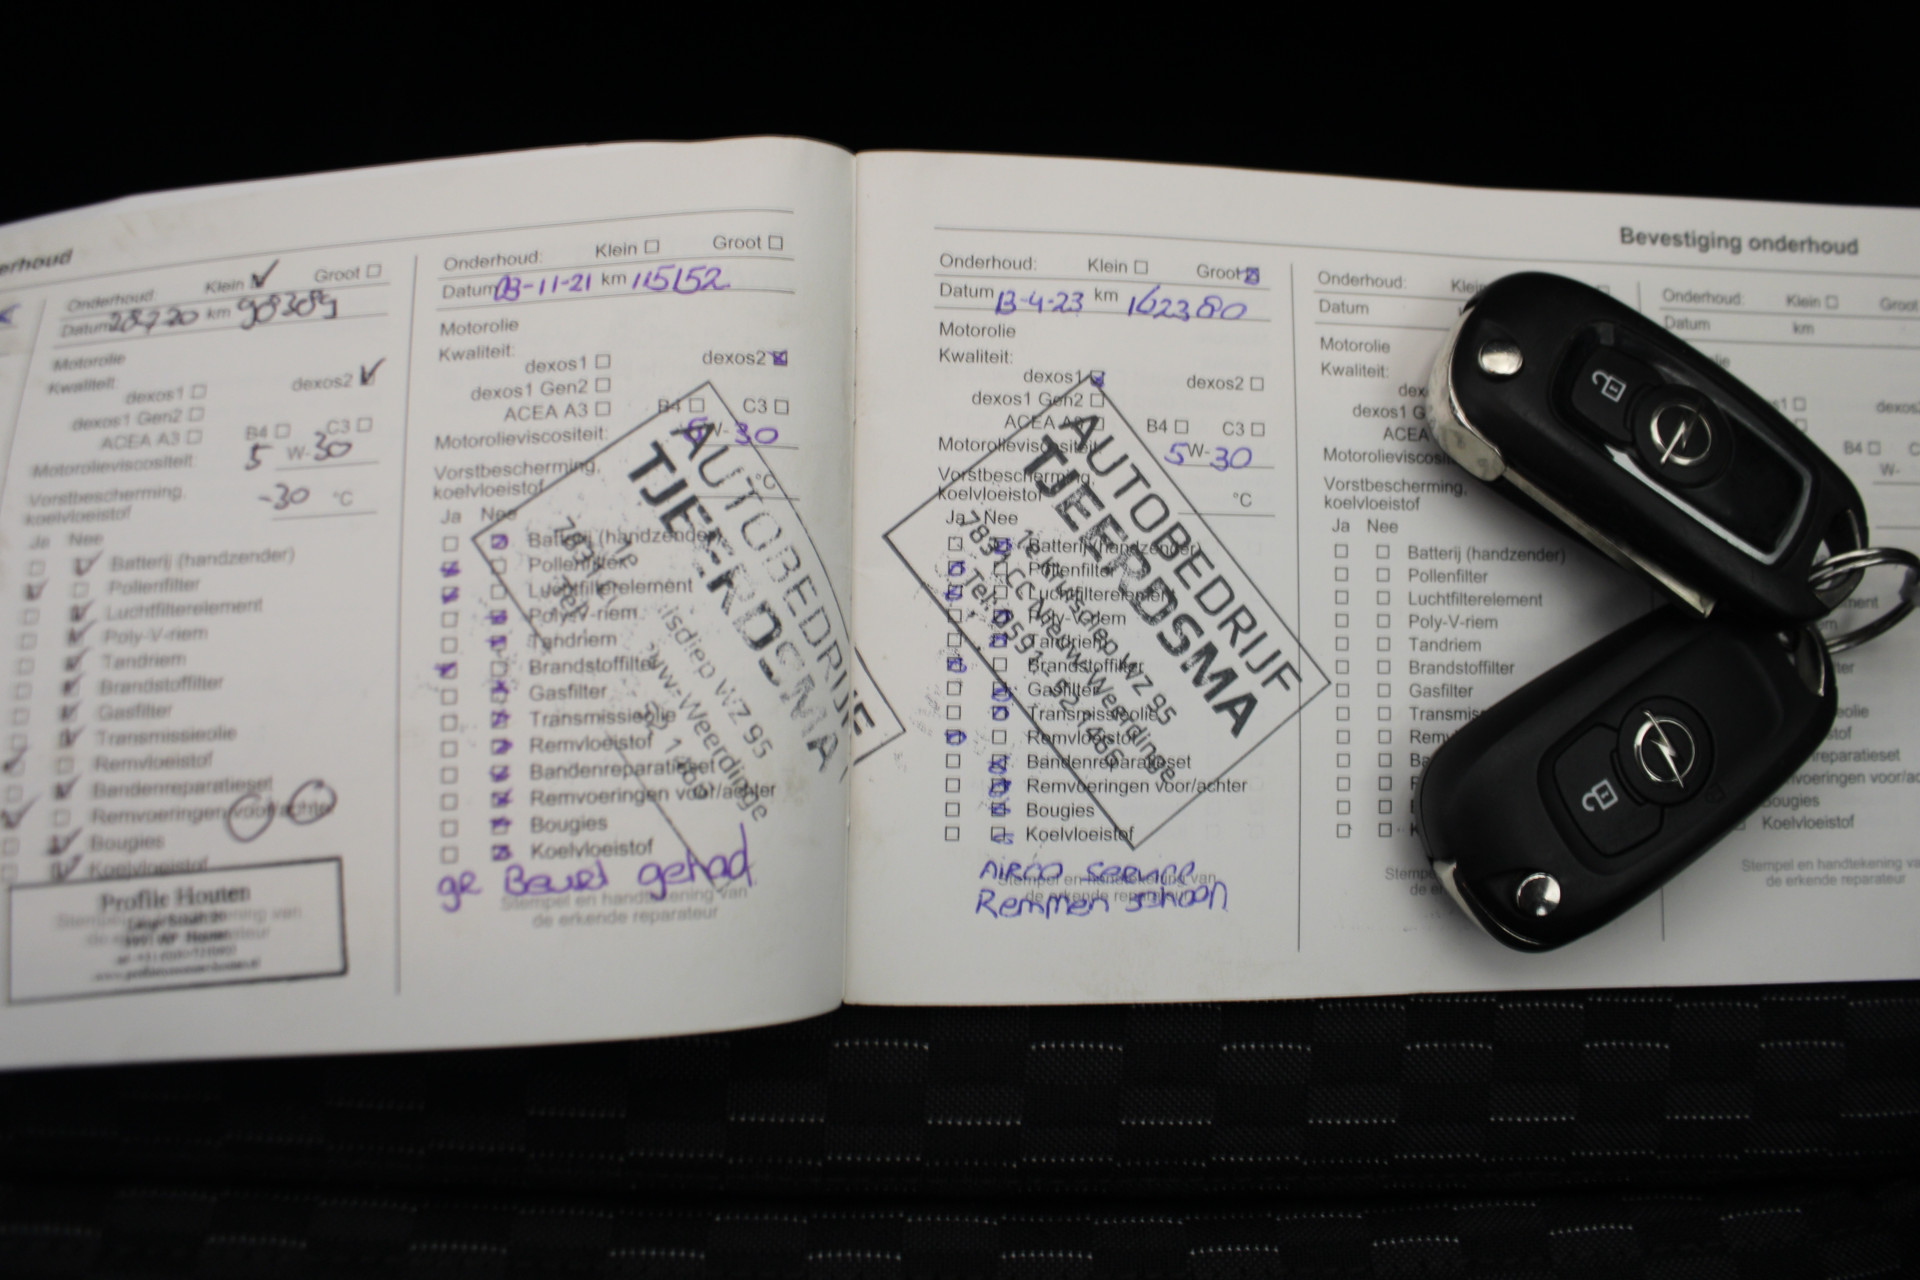 erhoud
Onderhoud: Klein Groot
Datum km 98389
Motorolie
Kwaliteit:
dexos1 dexos2
dexos1 Gen2
ACEA A3 B4 C3
Motorolieviscositeit: 5 W-30
Vorstbescherming,
koelvloeistof -30 °C
Ja Nee
Batterij (handzender)
Pollenfilter
Luchtfilterelement
Poly-V-riem
Tandriem
Brandstoffilter
Gasfilter
Transmissieolie
Remvloeistof
Bandenreparatieset
Remvoeringen voor/achter
Bougies
Koelvloeistof
Profile Houten
Onderhoud: Klein Groot
Datum 03-11-21 km 115152
Motorolie
Kwaliteit:
dexos1 dexos2
dexos1 Gen2
ACEA A3 B4 C3
Motorolieviscositeit: 5 W-30
Vorstbescherming,
koelvloeistof °C
Ja Nee
Batterij (handzender)
Pollenfilter
Luchtfilterelement
Poly-V-riem
Tandriem
Brandstoffilter
Gasfilter
Transmissieolie
Remvloeistof
Bandenreparatieset
Remvoeringen voor/achter
Bougies
Koelvloeistof
gr Beurt gehad
Stempel en handtekening van
de erkende reparateur
AUTOBEDRIJF
TJEERDSMA
WZ 95
Nieuw-Weerdinge
Onderhoud: Klein Groot
Datum 13-4-23 km 162380
Motorolie
Kwaliteit:
dexos1 dexos2
dexos1 Gen2
ACEA A3 B4 C3
Motorolieviscositeit: 5 W-30
Vorstbescherming,
koelvloeistof °C
Ja Nee
Batterij (handzender)
Pollenfilter
Luchtfilterelement
Poly-V-riem
Tandriem
Brandstoffilter
Gasfilter
Transmissieolie
Remvloeistof
Bandenreparatieset
Remvoeringen voor/achter
Bougies
Koelvloeistof
Airco service
Remmen schoon
Stempel en handtekening van
de erkende reparateur
AUTOBEDRIJF
TJEERDSMA
1e Kruisdiep WZ 95
7831 CC Nieuw-Weerdinge
Tel. 0591-521466
Bevestiging onderhoud
Onderhoud: Klein
Datum
Motorolie
Kwaliteit:
dexos1 G
ACEA
Motorolieviscosit
Vorstbescherming,
koelvloeistof
Ja Nee
Batterij (handzender)
Pollenfilter
Luchtfilterelement
Poly-V-riem
Tandriem
Brandstoffilter
Gasfilter
Transmiss
Remv
Ba
Stempe
de er
Onderhoud: Klein Groot
Datum km
B4
W-
Bougies
Koelvloeistof
Stempel en handtekening va
de erkende reparateur